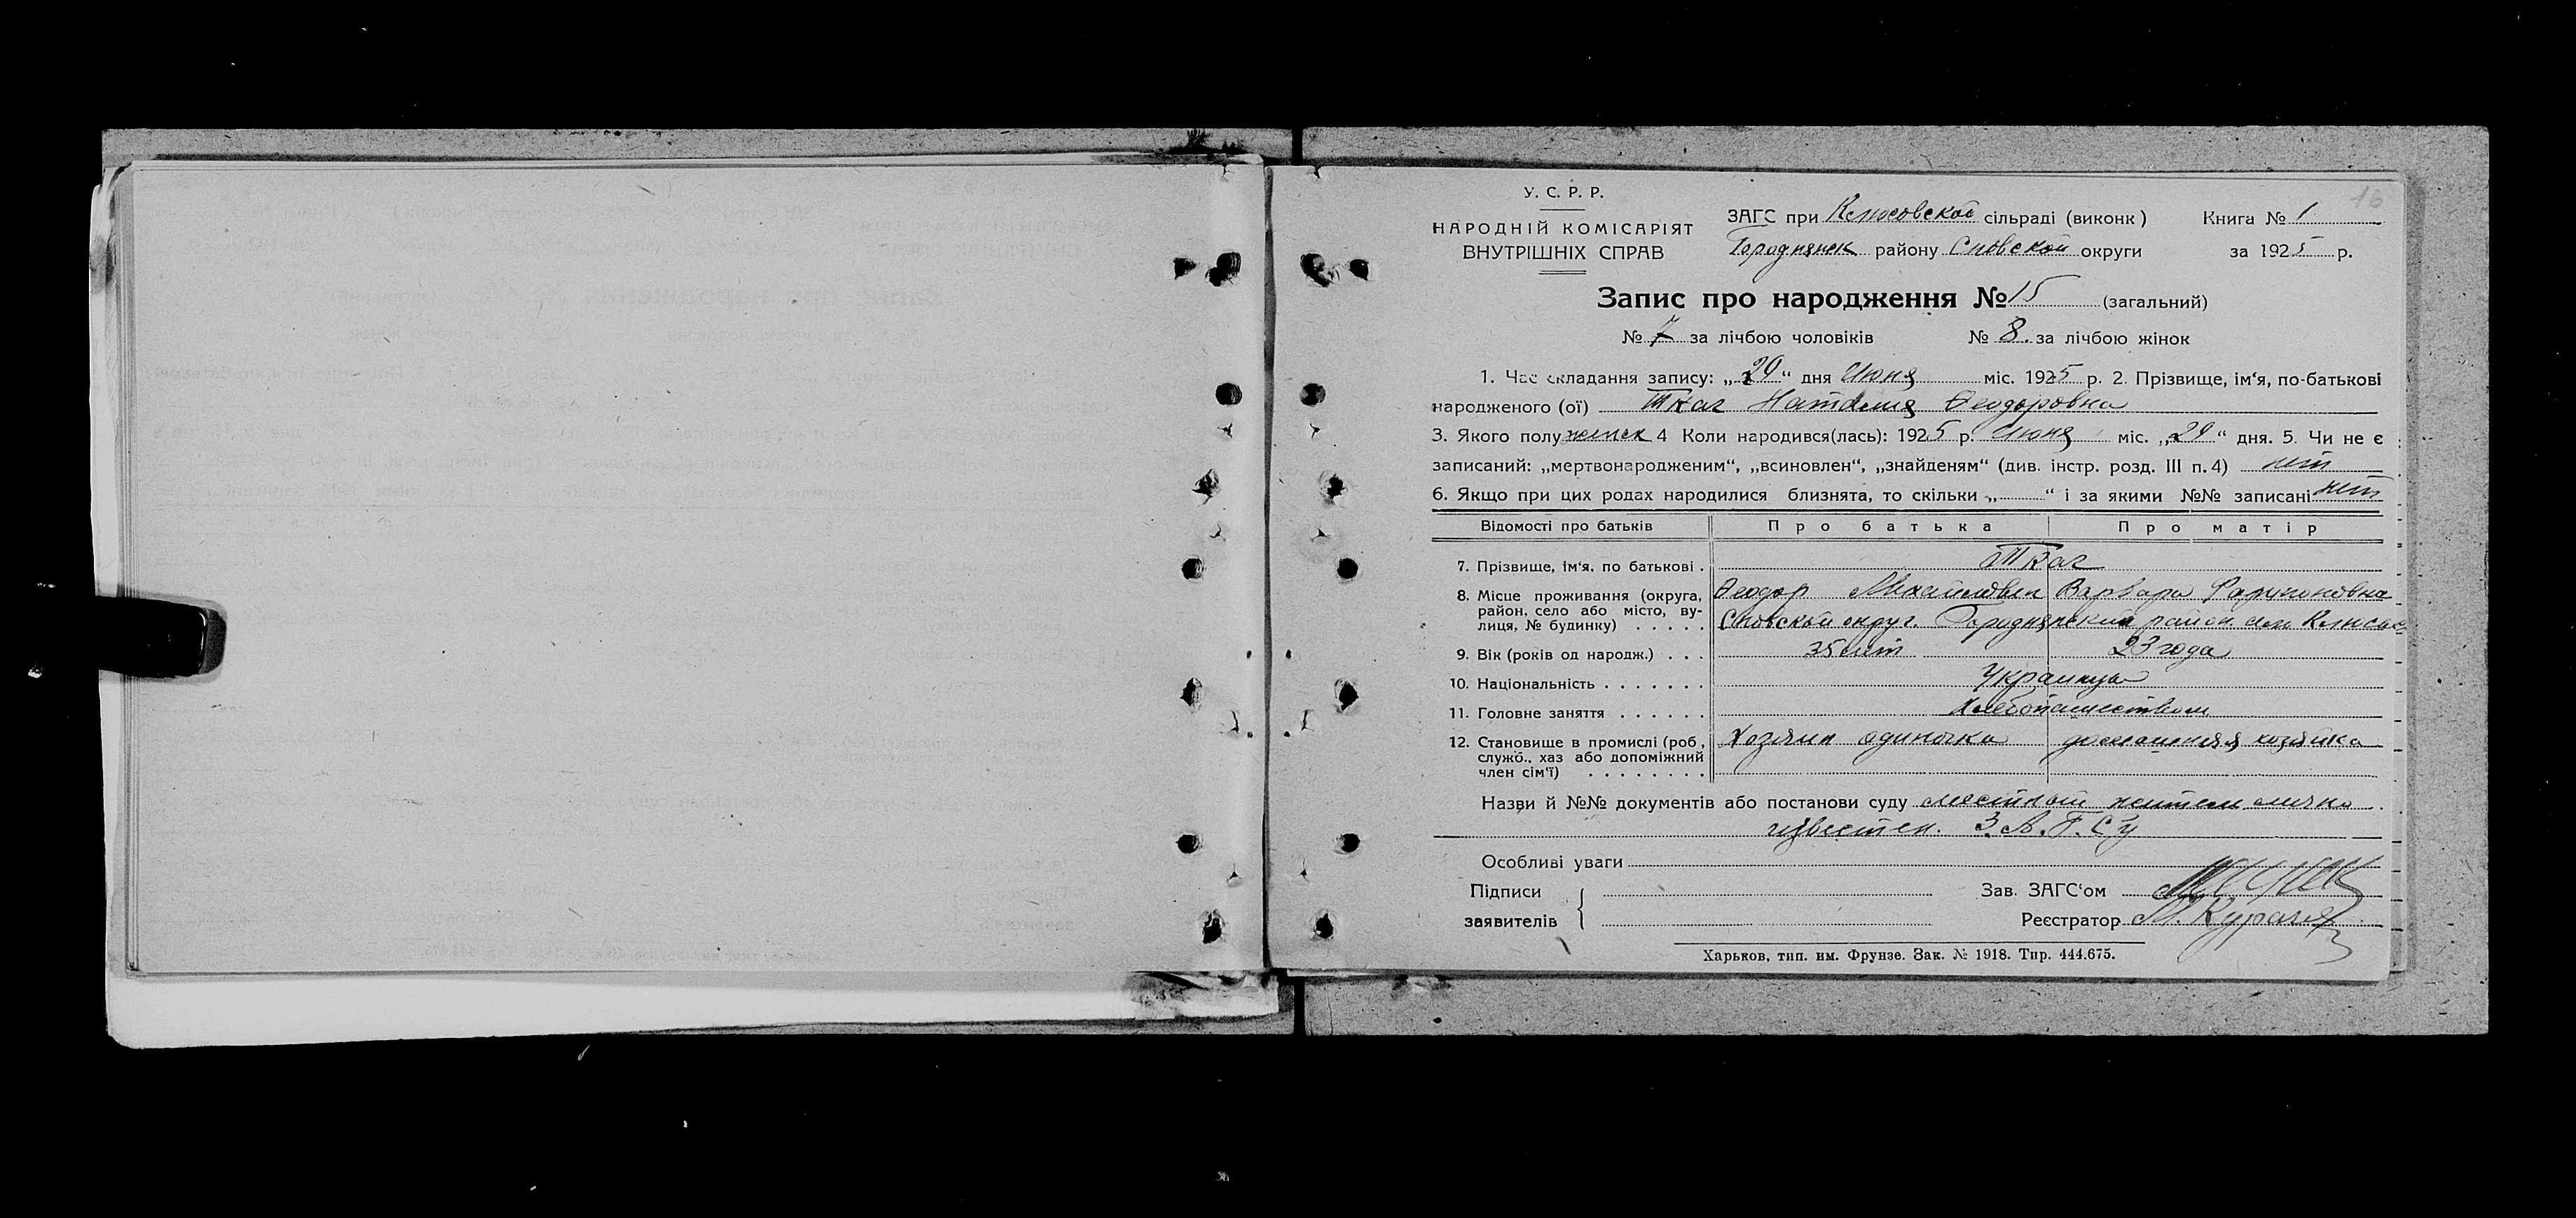 16
У. С. Р. Р.
НАРОДНІЙ КОМІСАРІЯТ
ВНУТРІШНІХ СПРАВ
ЗАГС при Клюсовской сільраді (виконк) Книга № 1
Городнянск району Сновской округи за 1925 р.
Запис про народження № 15 (загальний)
№ 7 за лічбою чоловіків № 8. за лічбою жінок
1. Час складання запису: „29“ дня Июня міс. 1925 р. 2. Прізвище, ім‘я, по-батькові
народженого (ої) Ткач Наталия Феодоровна
3. Якого полу женск 4 Коли народився(лась): 1925 р. Июня міс. „29“ дня. 5. Чи не є
записаний: „мертвонародженим“, „всиновлен“, „знайденям“ (див. інстр. розд. III п. 4) нет
6. Якщо при цих родах народилися близнята, то скільки „ “ і за якими №№ записані нет
Відомості про батьків Про батька Про матір
7. Прізвище, ім‘я, по батькові . Ткач
8. Місце проживання (округа, район, село або місто, вулиця, № будинку) . . . . . Феодор Михайлович Варвара
Сновской округ. Городнянский район село
9. Вік (років од народж.) . . . 35 лет 23 года
10. Національність . . . . . . . Украинцы
11. Головне заняття . . . . . . Хлебопашеством
12. Становище в промислі (роб, служб., хаз або допоміжний член сім‘ї) . . . . . . . . Хозяин одиночка домашняя хозяйка
Назви й №№ документів або постанови суду местный житель лично
известен. З.А.Г.Су
Особливі уваги
Підписи Зав. ЗАГС‘ом
заявителів Реєстратор М.
Харьков, тип. им. Фрунзе. Зак. № 1918. Тир. 444.675.